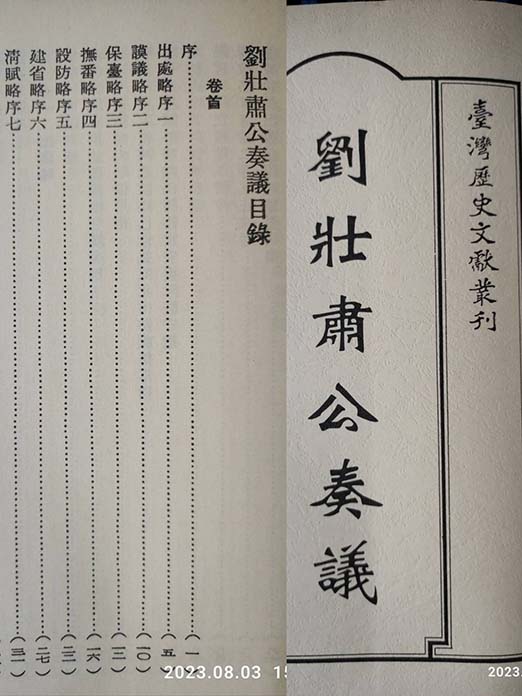 臺灣歷史文獻叢刊
劉壯肅公奏議
劉壯肅公奏議目錄
卷首
序……(一)
出處略序一……(五)
謨議略序二……(一〇)
保臺略序三……
撫番略序四……(一六)
設防略序五……
建省略序六……(二七)
清賦略序七……
2023.08.03 15
2023